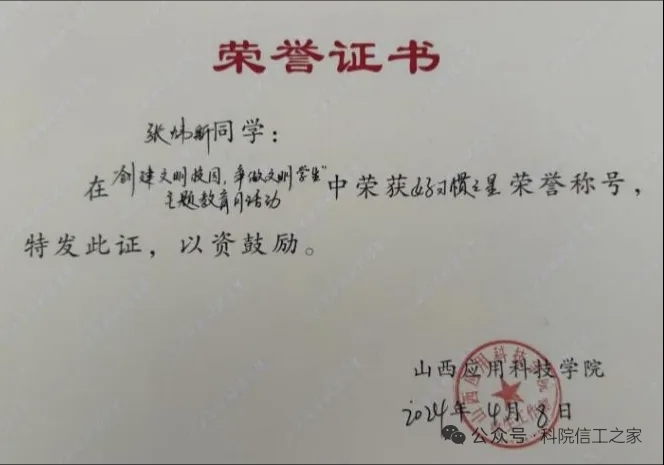 荣誉证书
张炜昕同学：
在"创建文明校园，争做文明学生"
主题教育月活动
中荣获好习惯之星荣誉称号，
特发此证，以资鼓励。
山西应用科技学院
山西应用科技学院
2024年4月8日
公众号·科院信工之家